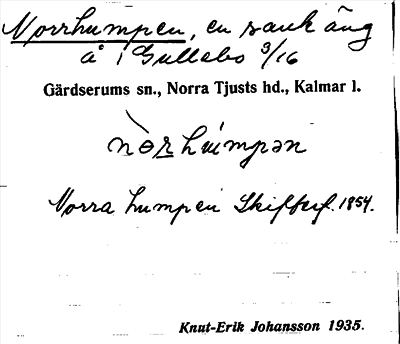 Norrhumpen, en sank äng
å i Gullebo 3/16
Gärdserums sn., Norra Tjusts hd., Kalmar l.
nòrhúmpən
Norra humpen Skifferf. 1854.
Knut-Erik Johansson 1935.